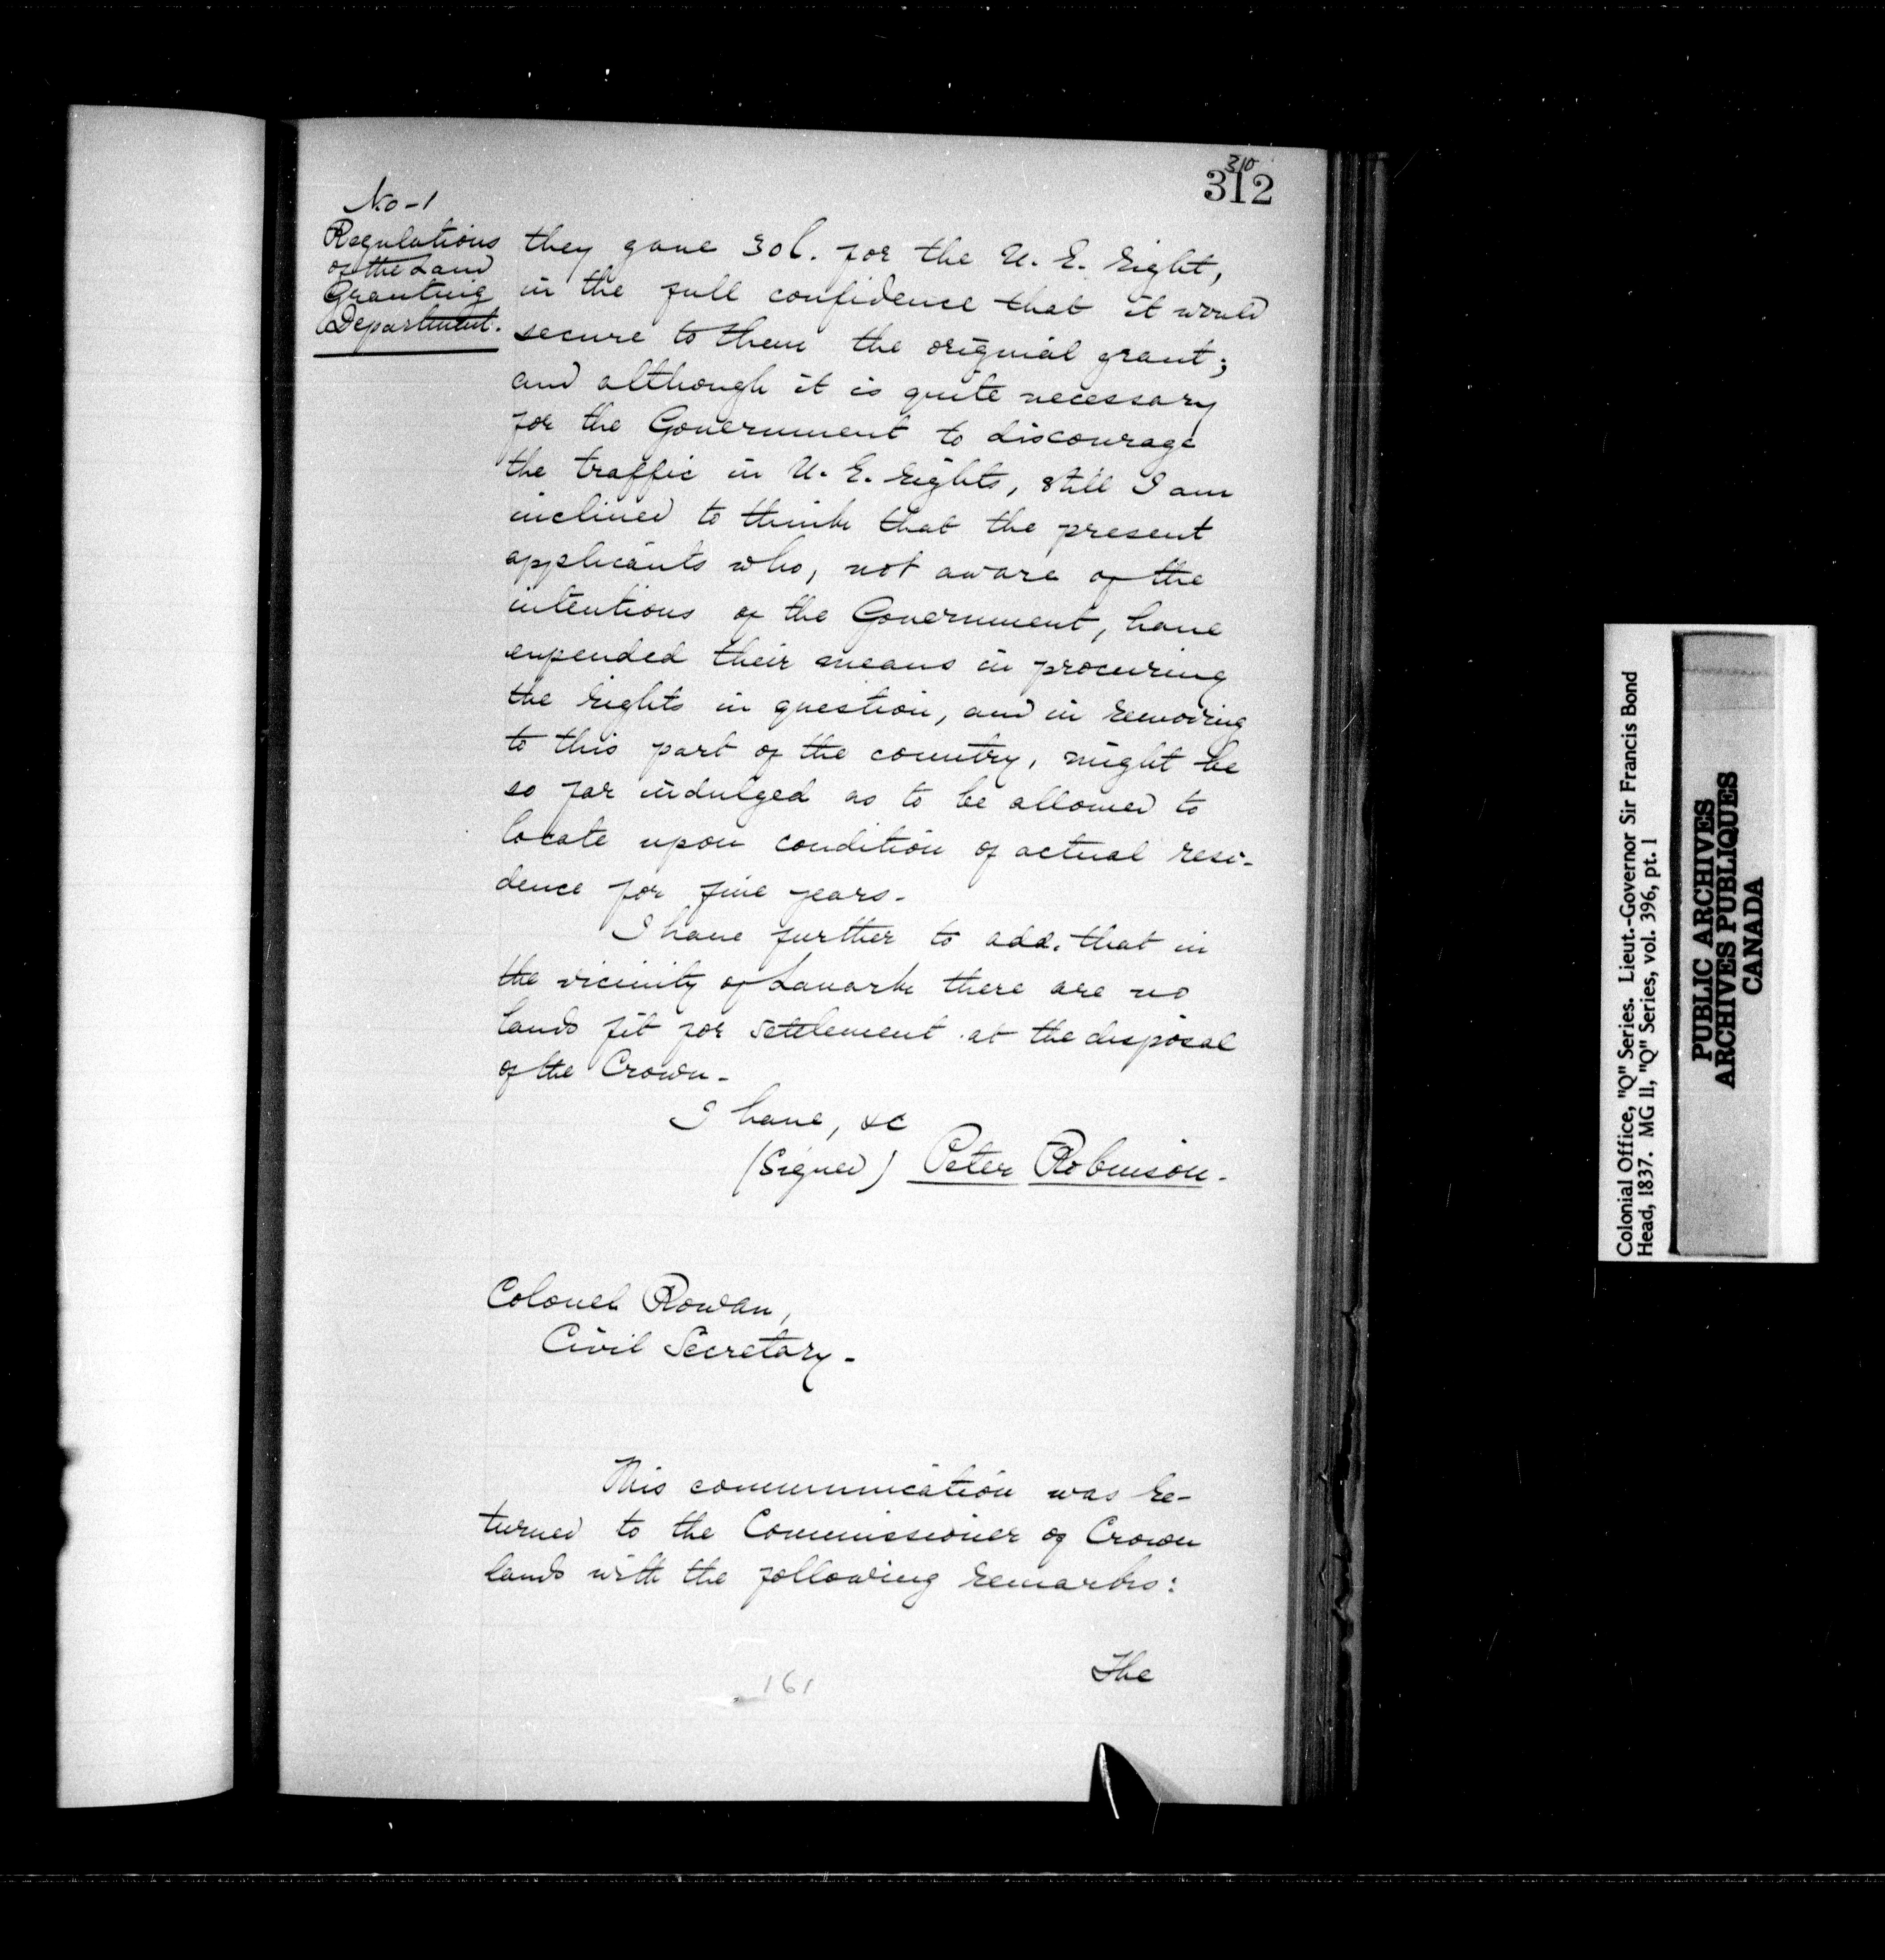 310
312
No-1
Regulations
of the Land
Granting
Department.
they gave 30l. for the U. E. right,
in the full confidence that it would
secure to them the original grant;
and although it is quite necessary
for the Government to discourage
the traffic in U. E. rights, still I am
inclined to think that the present
applicants who, not aware of the
intentions of the Government, have
expended their means in procuring
the rights in question, and in removing
to this part of the country, might be
so far indulged as to be allowed to
locate upon condition of actual resi-
dence for five years.
I have further to add, that in
the vicinity of Lanark there are no
lands fit for settlement at the disposal
of the Crown.
I have, &c
(Signed) Peter Robinson.
Colonel Rowan,
Civil Secretary.
This communication was re-
turned to the Commissioner of Crown
lands with the following remarks:
The
161
Colonial Office, "Q" Series. Lieut.-Governor Sir Francis Bond
Head, 1837. MG 11, "Q" Series, vol. 396, pt. 1
PUBLIC ARCHIVES
ARCHIVES PUBLIQUES
CANADA